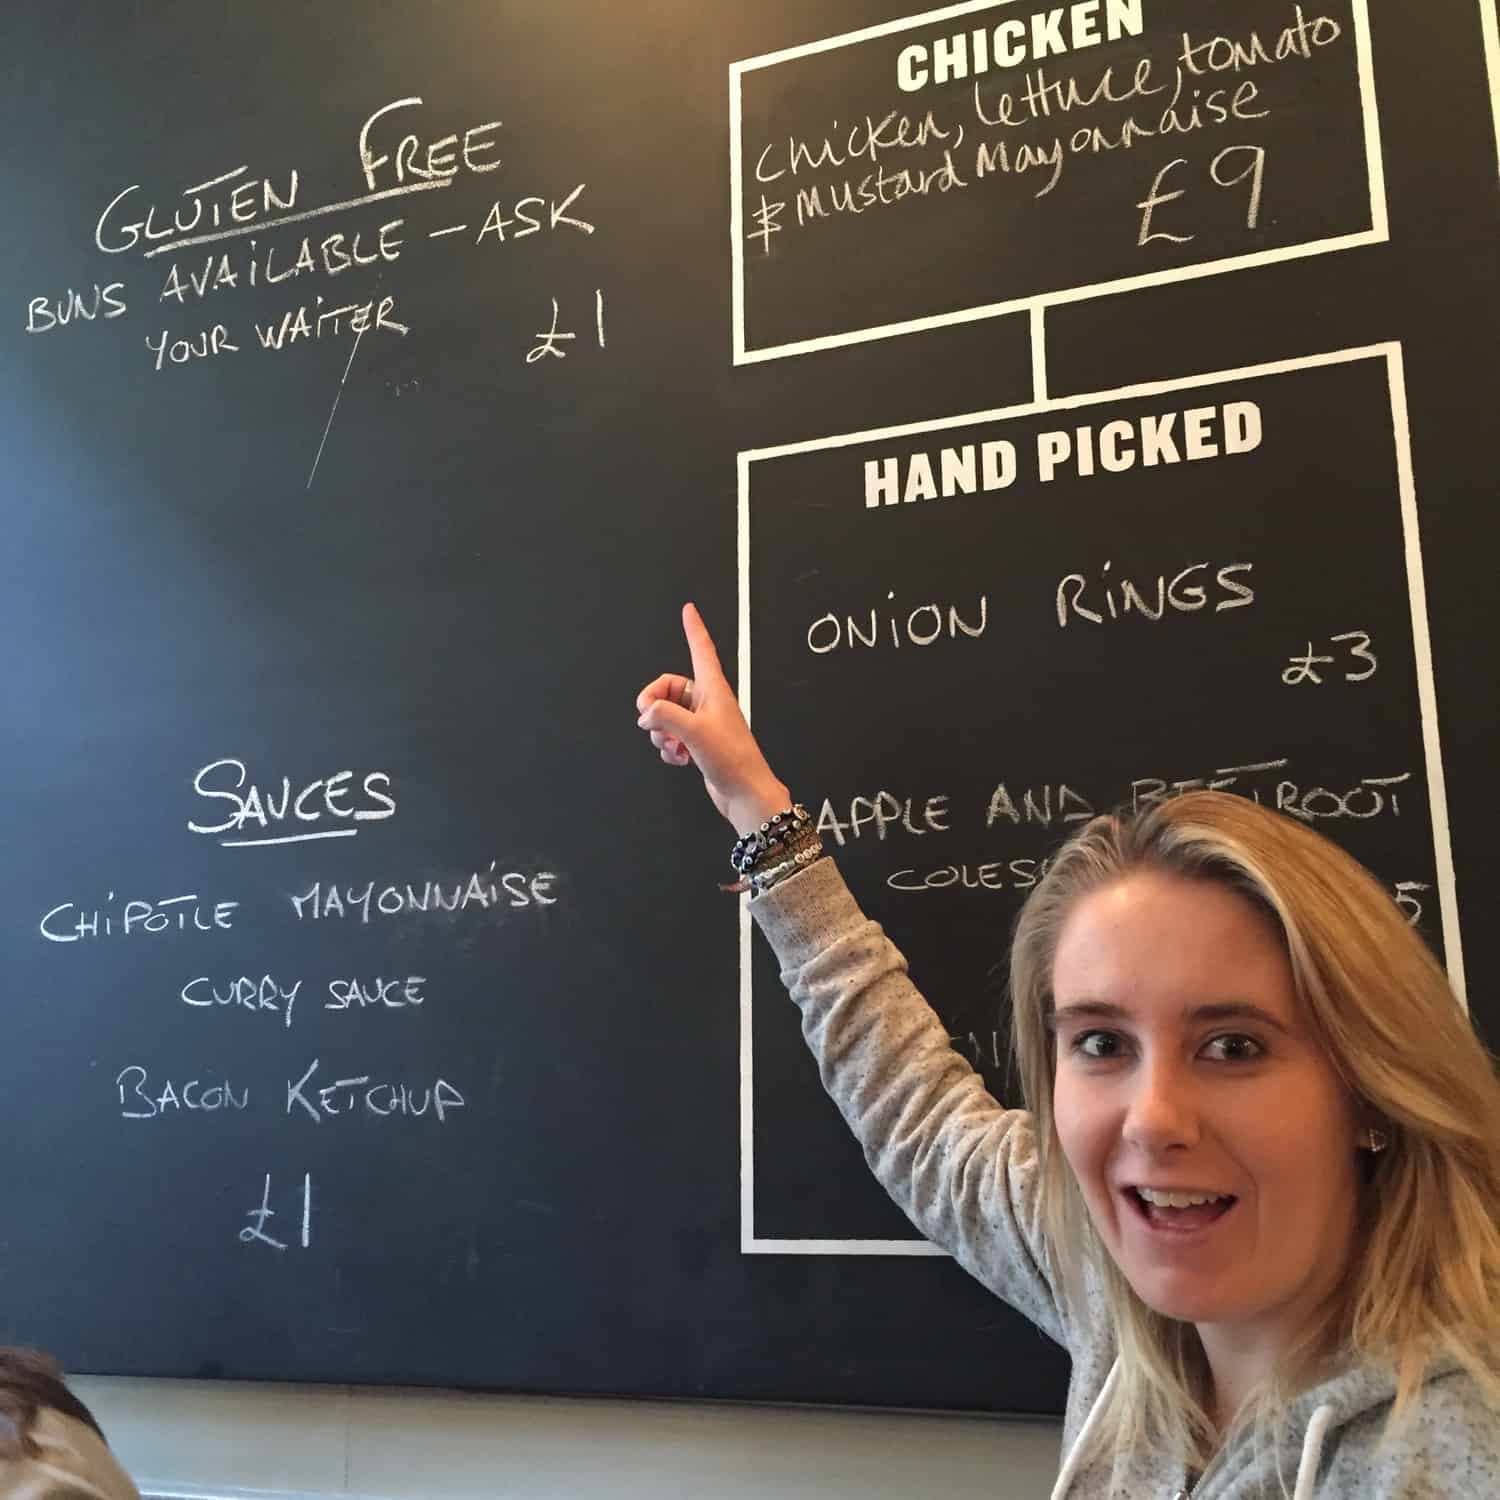 GLUTEN FREE
BUNS AVAILABLE - ASK
YOUR WAITER £1
SAUCES
CHIPOTLE MAYONNAISE
CURRY SAUCE
BACON KETCHUP
£1
CHICKEN
Chicken, lettuce, tomato
& Mustard Mayonnaise
£9
HAND PICKED
ONION RINGS
£3
APPLE AND BEETROOT
COLES
5